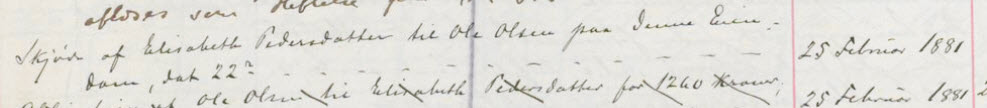 afløses som
Skjøde af Elisabeth Pedersdatter til Ole Olsen paa denne Eien-
dom, dat 22de 25 Februar 1881
af Ole Olsen til Elisabeth Pedersdatter for 1260 Kroner, 25 Februar 1881 2